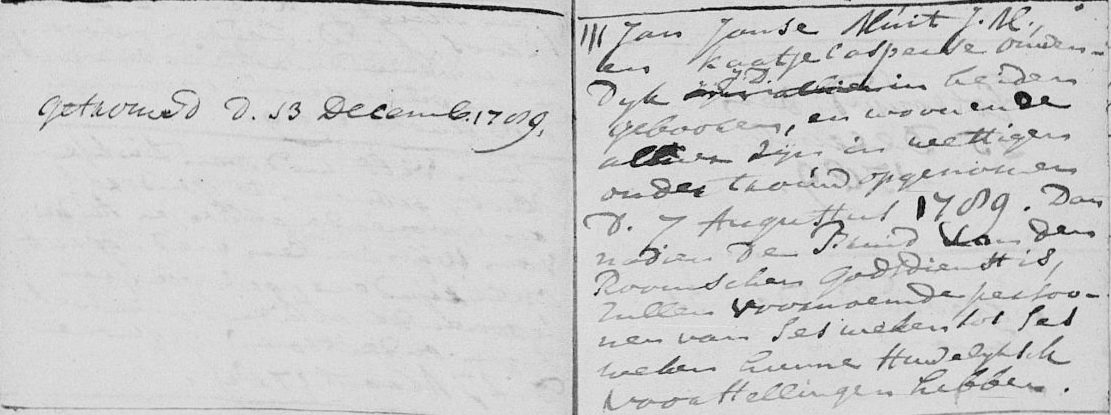 getrouwd D. 13 Decemb. 1789.
III Jan Janse Muit J.M.,
en Kaatje Caspense ouden-
Dyk J.D. beiden
gebooren, en woonende
alhier zyn in wettigen
ondertrouw opgenomen
D. 7 Augustus 1789. Dan
nadien De Bruid van den
Roomschen godsdienst is,
zullen voornoemde persoo-
nen van ses weken tot ses
weken hunne Huwelyksche
voorstellingen hebben.